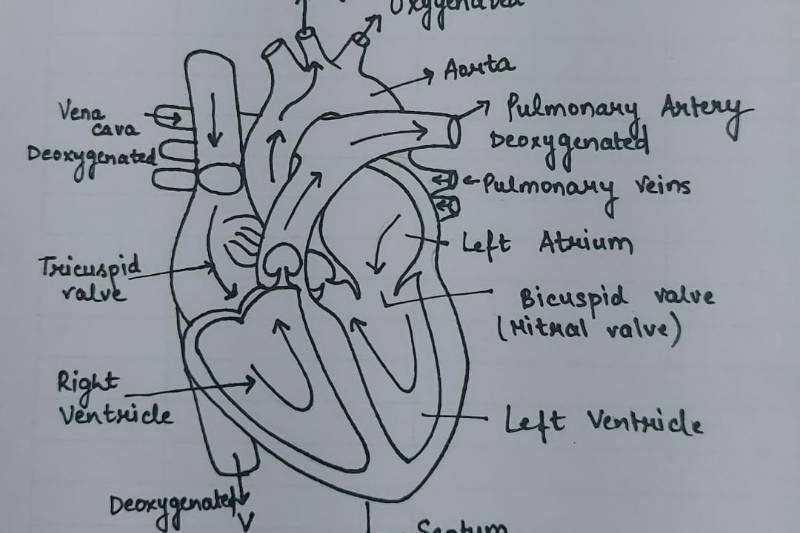 Oxygenated
Aorta
Vena
cava
Deoxygenated
Pulmonary Artery
Deoxygenated
Pulmonary veins
Left Atrium
Tricuspid
valve
Bicuspid valve
(Mitral valve)
Right
Ventricle
Left Ventricle
Deoxygenated
Septum